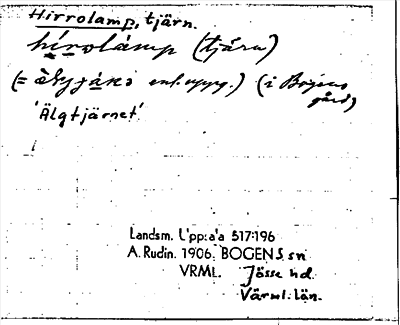 Hirrolamp, tjärn.
hírolámp (tjärn)
(= enl. uppg.) (i Bogens
gård)
'Älgtjärnet'.
Landsm. Upp:a'a 517:196
A. Rudin. 1906. BOGENS sn
VRML. Jösse hd.
Värml. län.